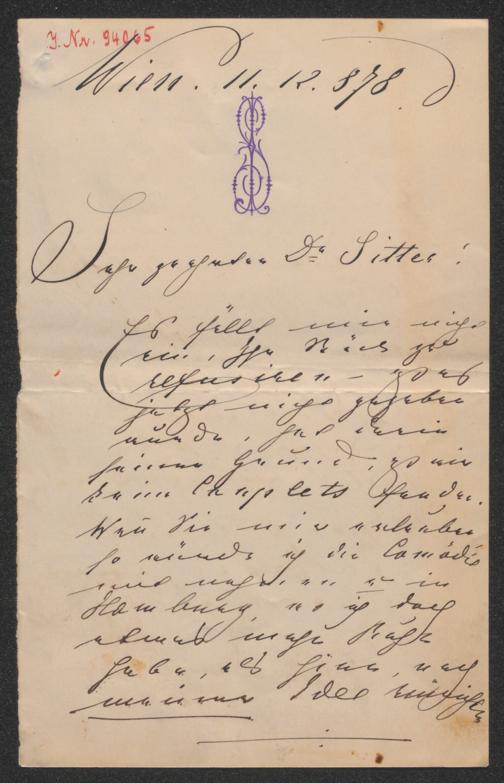 J. Nr. 94065
Wien. 11. 12. 878.
Sehr geehrter Dr Sitter!
Es fällt mir nicht
ein, Ihr Stück zu
refusiren – daß es
jetzt nicht gegeben
wurde, hat darin
seinen Grund, daß wir
keine Couplets fanden.
Wenn Sie mir erlauben
so würde ich die Comödie
mit nehmen u in
Hamburg, wo ich doch
etwas mehr Ruhe
habe, als hier, nach
meiner Idee